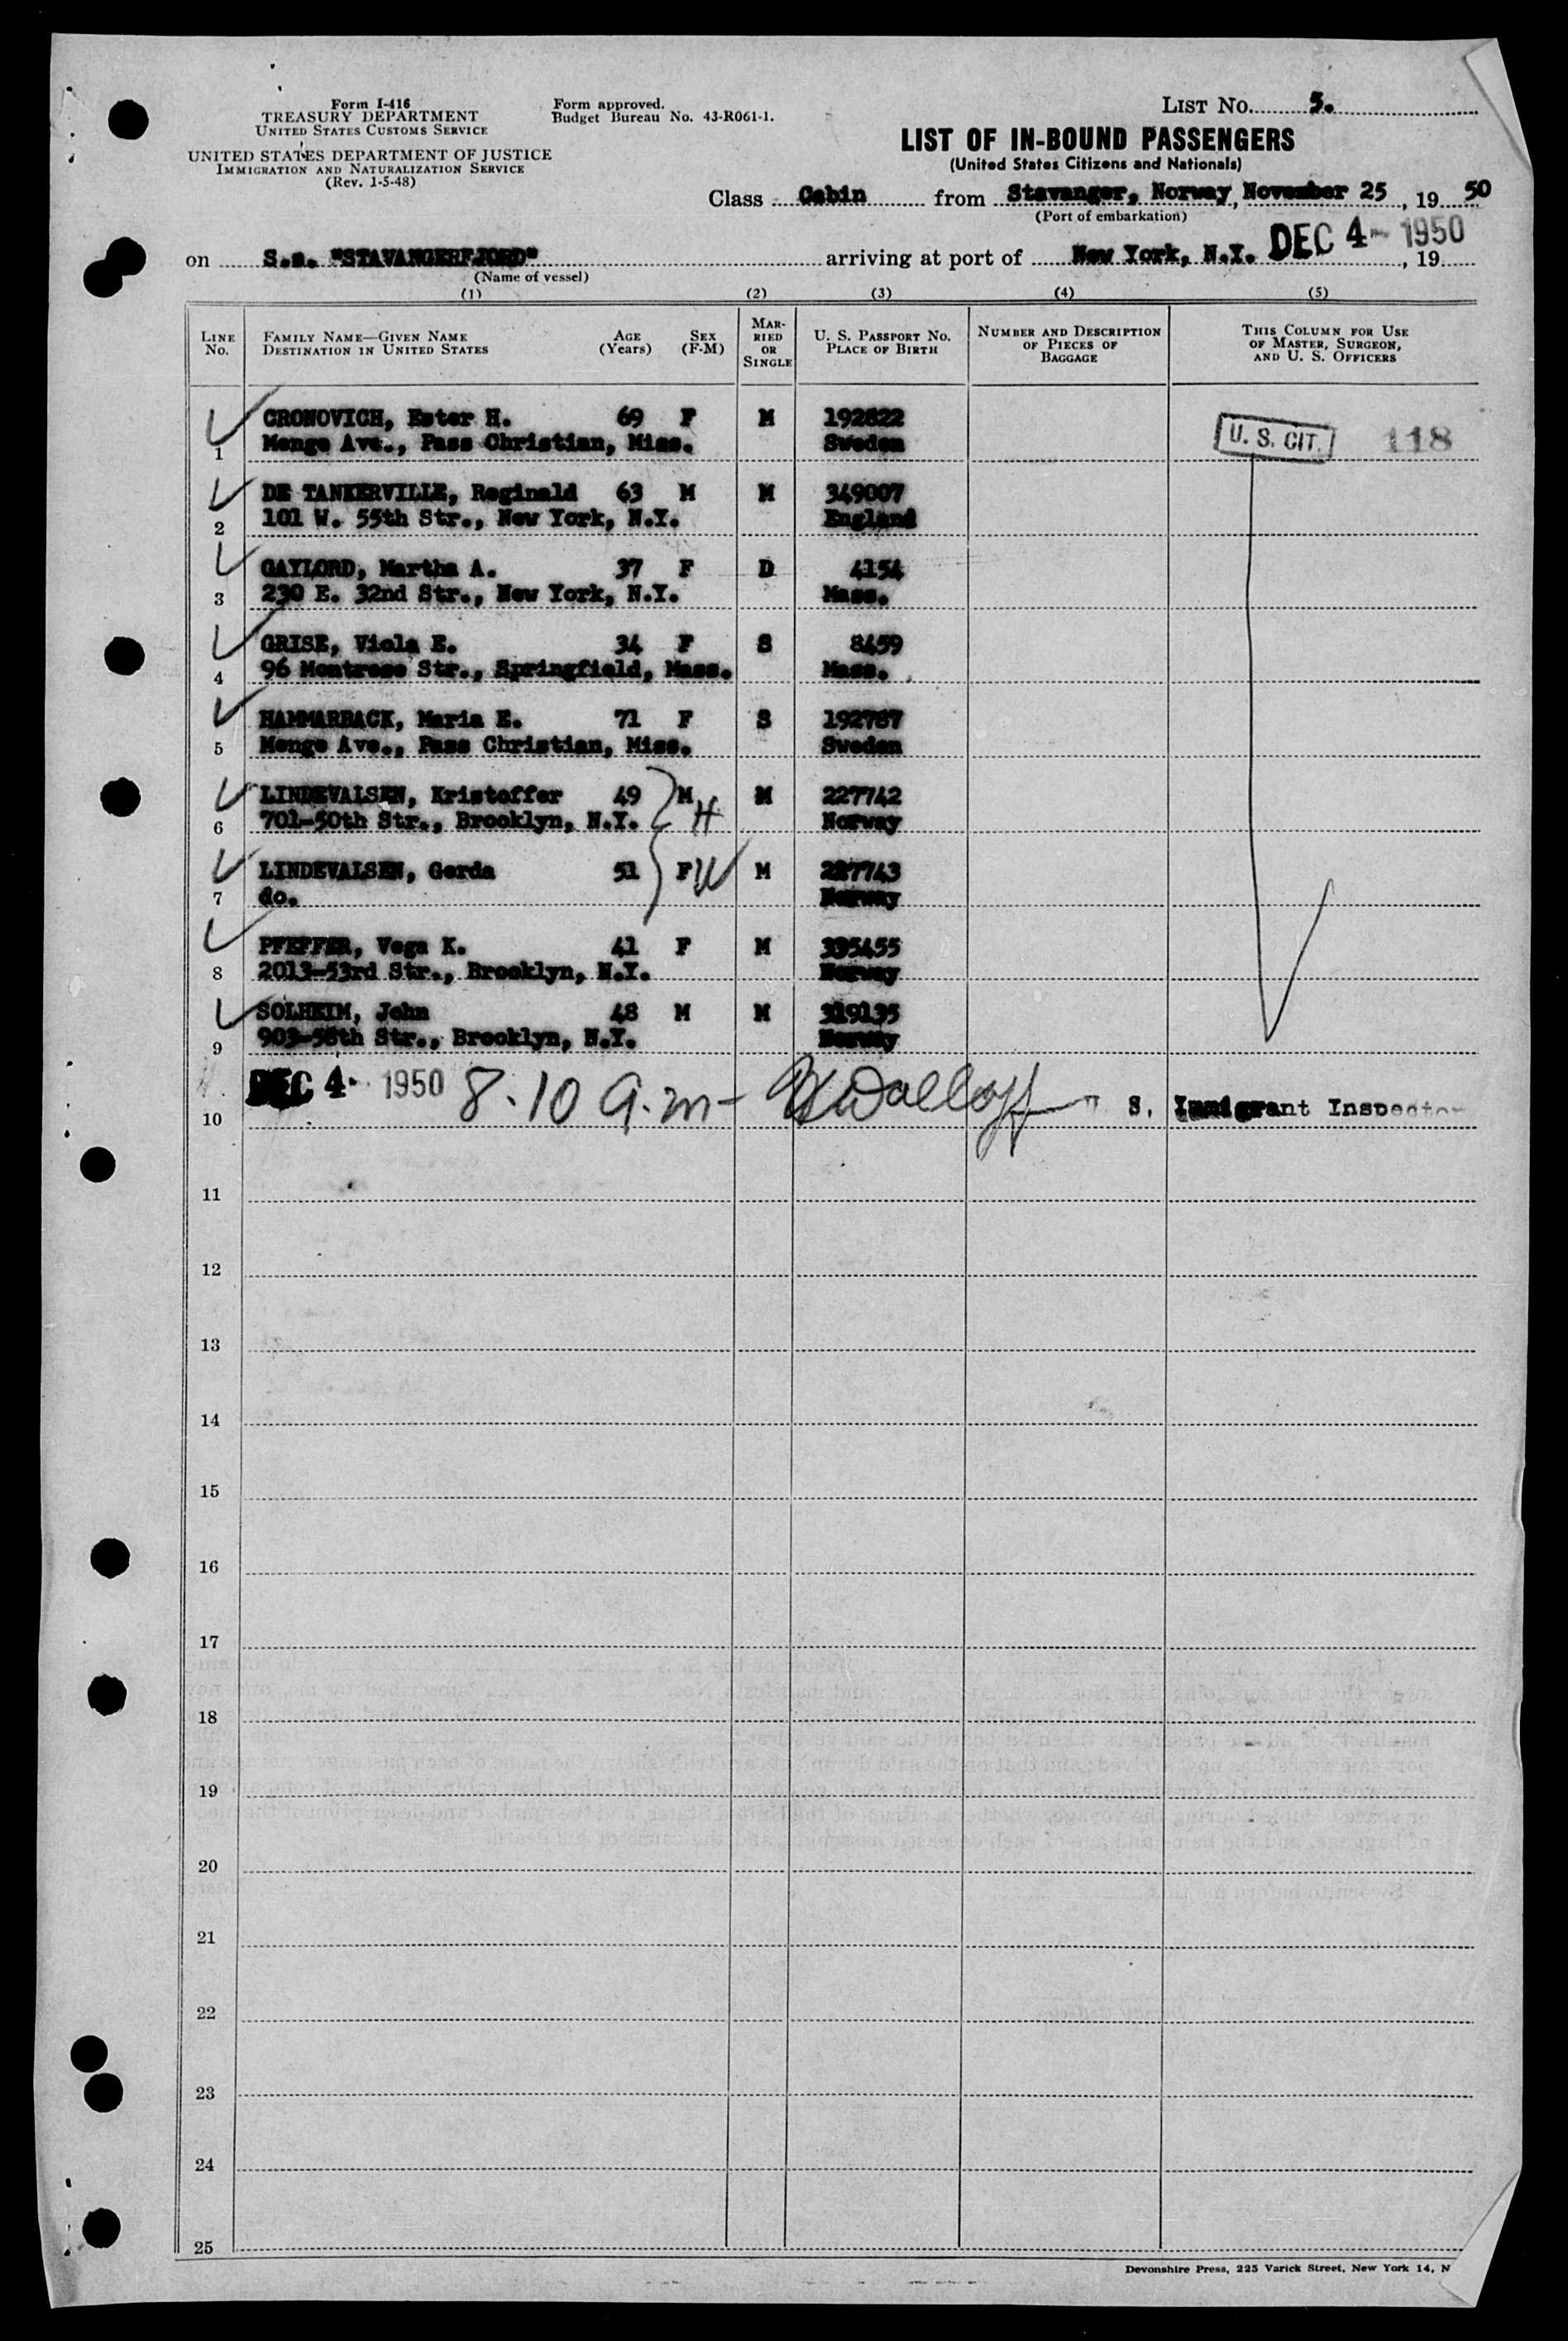 Form I-416
TREASURY DEPARTMENT
UNITED STATES CUSTOMS SERVICE
UNITED STATES DEPARTMENT OF JUSTICE
IMMIGRATION AND NATURALIZATION SERVICE
(Rev. 1-5-48)
Form approved.
Budget Bureau No. 43-R061-1.
LIST No. 5.
LIST OF IN-BOUND PASSENGERS
(United States Citizens and Nationals)
Class Cabin from Stavanger, Norway, November 25, 19 50
(Port of embarkation)
on S.s. "STAVANGERFJORD" arriving at port of New York, N.Y. DEC 4- 1950, 19
(Name of vessel)
(1) (2) (3) (4) (5)
LINE No.
FAMILY NAME—GIVEN NAME
DESTINATION IN UNITED STATES
AGE (Years)
SEX (F-M)
MARRIED OR SINGLE
U. S. PASSPORT NO.
PLACE OF BIRTH
NUMBER AND DESCRIPTION OF PIECES OF BAGGAGE
THIS COLUMN FOR USE OF MASTER, SURGEON, AND U. S. OFFICERS
CRONOVICH, Ester H. 69 F M 192822 U. S. CIT. 118
1 Menge Ave., Pass Christian, Miss. Sweden
DE TANKERVILLE, Reginald 63 M M 349007
2 101 W. 55th Str., New York, N.Y. England
GAYLORD, Martha A. 37 F D 4154
3 230 E. 32nd Str., New York, N.Y. Mass.
GRISE, Viola E. 34 F S 8459
4 96 Montrose Str., Springfield, Mass. Mass.
HAMMARBACK, Maria E. 71 F S 192787
5 Menge Ave., Pass Christian, Miss. Sweden
LINDEVALSEN, Kristoffer 49 M M 227742
6 701-50th Str., Brooklyn, N.Y. H Norway
LINDEVALSEN, Gerda 51 F W M 227743
7 do. Norway
PFEFFER, Vega K. 41 F M 395455
8 2013-53rd Str., Brooklyn, N.Y. Norway
SOLHEIM, John 48 M M 319135
9 903-58th Str., Brooklyn, N.Y. Norway
DEC 4- 1950 8.10 a.m- S. Immigrant Inspector
10
11
12
13
14
15
16
17
18
19
20
21
22
23
24
25
Devonshire Press, 225 Varick Street, New York 14, N